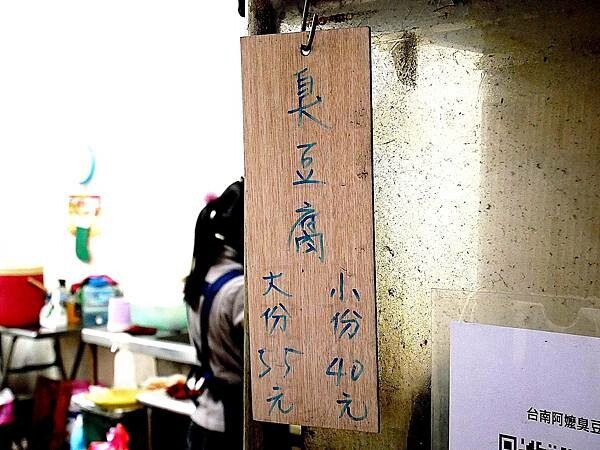 臭豆腐
小份40元
大份55元
台南阿嬤臭豆